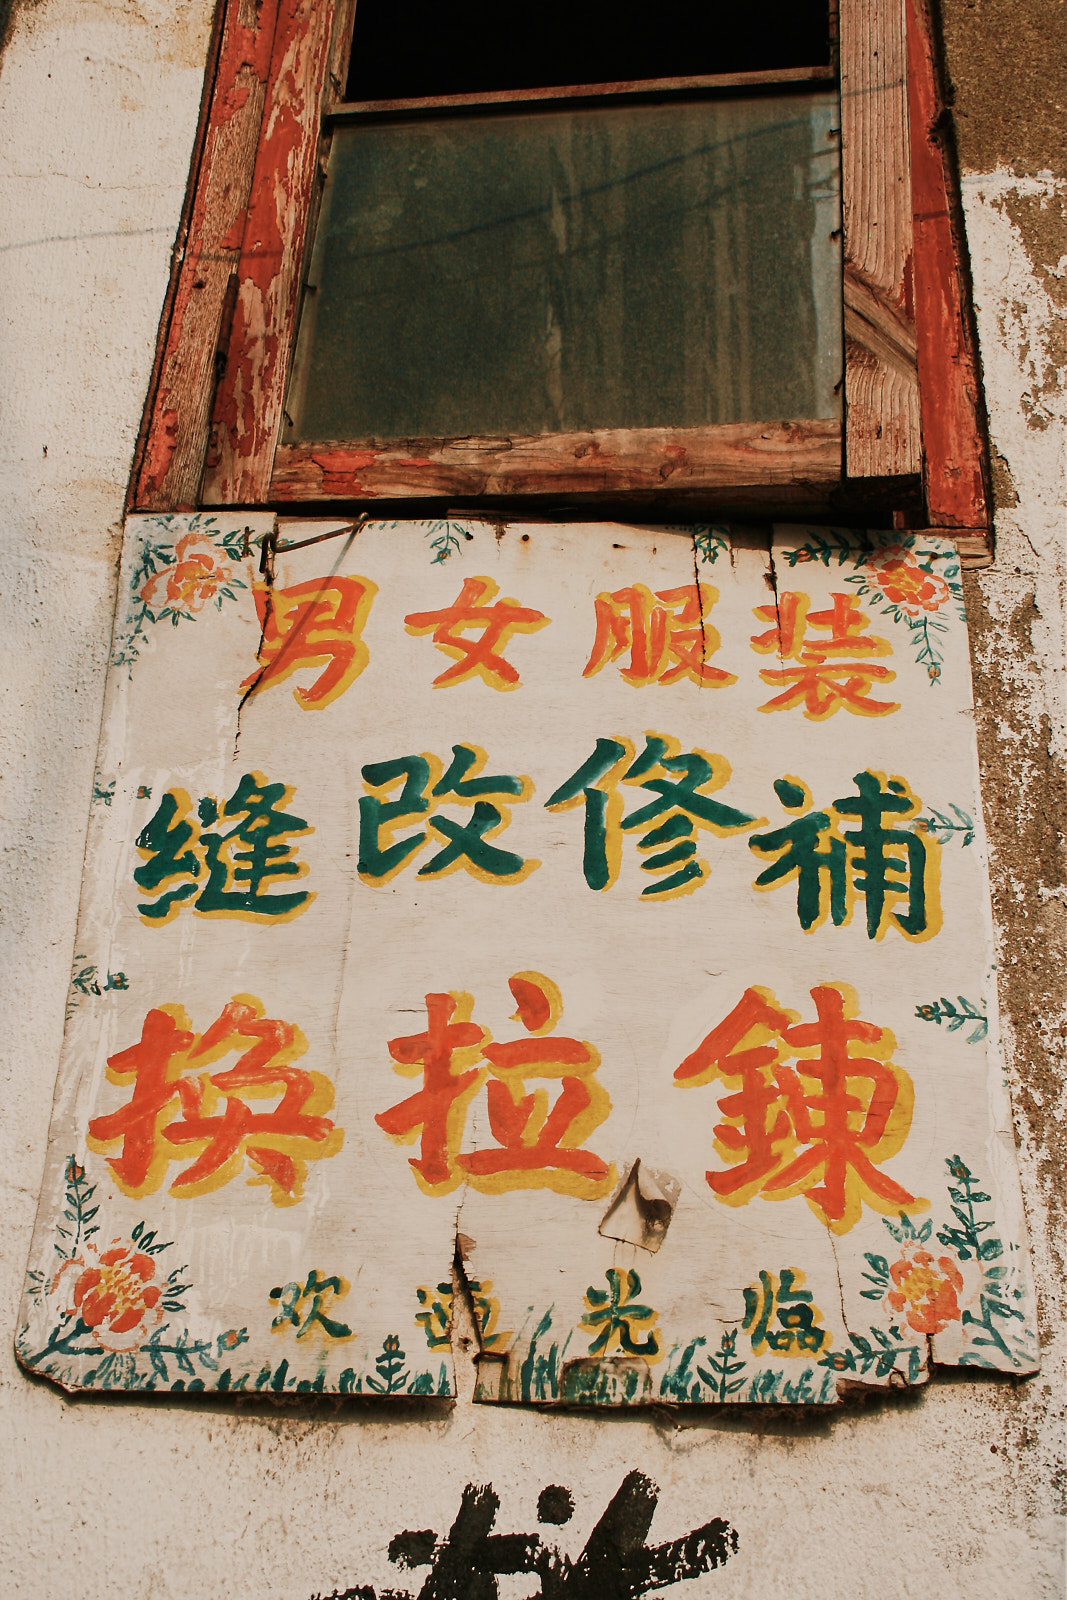 男女服装
縫改修補
換拉鍊
欢迎光臨